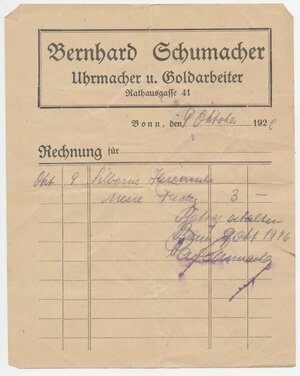 Bernhard Schumacher
Uhrmacher u. Goldarbeiter
Rathausgasse 41
Bonn, den 9 Oktober 1926
Rechnung für
Okt 9 Silberne
Neue Feder 3 —
Betrag erhalten
Bonn 9 Okt 1926
Schumacher